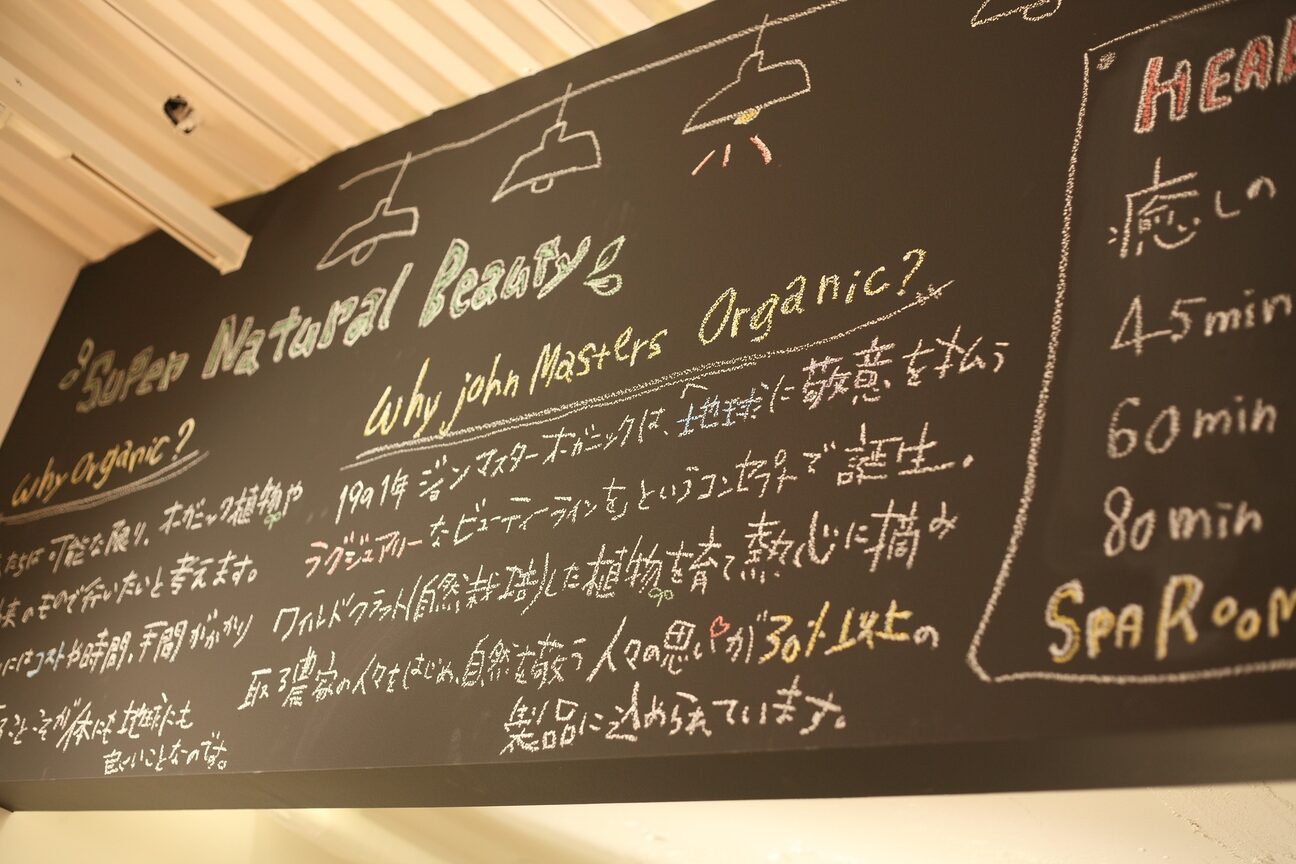 Super Natural Beauty
Why Organic?
たちは可能な限り、オーガニック植物や
来のもので行いたいと考えます。
にはコストや時間、手間がかかり
ことこそが体にも地球にも
良いことなのです。
Why john Masters Organic?
1991年 ジョンマスターオーガニックは、地球に敬意を払う
ラグジュアリーなビューティーラインを、というコンセプトで誕生。
ワイルドクラフト(自然栽培)した植物を育て熟くじに摘み
取る農家の人々をはじめ、自然を敬う人々の思いが30%以上の
製品に込められています。
HEAL
癒しの
45min
60min
80min
SPA ROOM